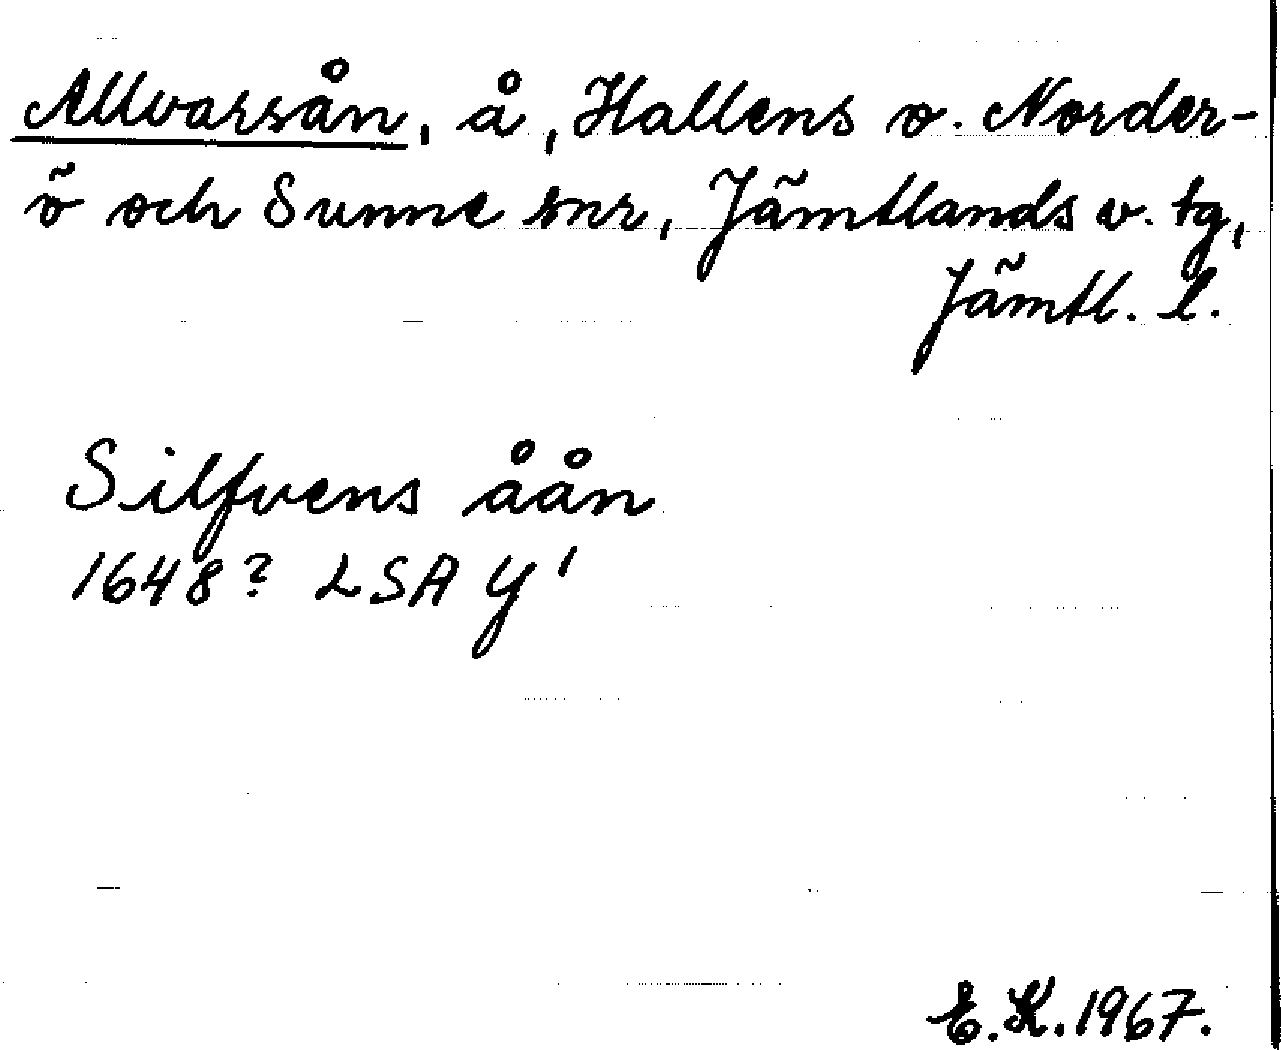 Allvarsån, å, Hallens o. Norder-
ö och Sunne snr, Jämtlands v. tg,
Jämtl. l.
Silfvens åån
1648? LSA Y'
E.K. 1967.